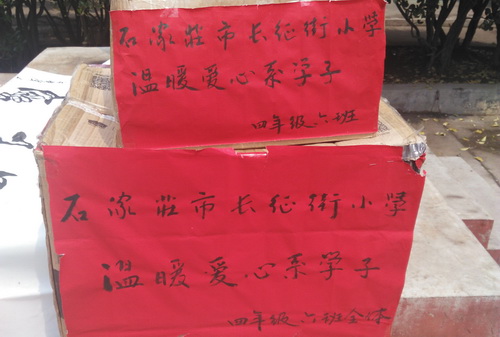 石家莊市长征街小学
温暖爱心系学子
四年级六班
石家莊市长征街小學
溫暖爱心系学子
四年级六班全体